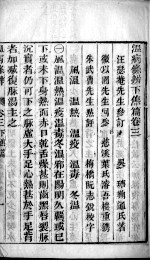 溫病條辨下焦篇卷三
汪瑟菴先生參訂 吳瑭鞠通氏著
徵以園先生同參 慈谿葉氏濬吾樓重鐫
朱武曹先生點評 梅橋阮志盤校字
風溫 溫熱 溫疫 溫毒 冬溫
㊀風溫溫熱溫疫溫毒冬溫邪在陽明久羈或已
下或未下身熱面赤口乾舌燥甚則齒黑脣裂脈
沉實者仍可下之脈虛大手足心熱甚於手足背
者加減復脈湯主之